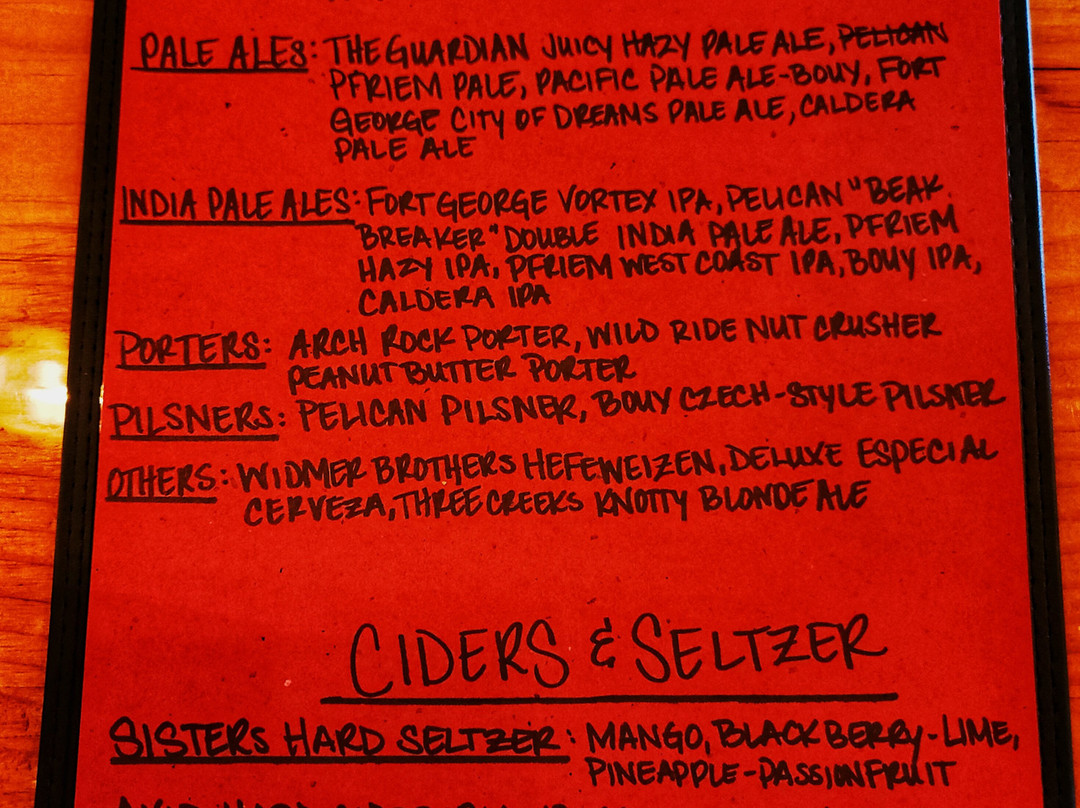 PALE ALES: THE GUARDIAN JUICY HAZY PALE ALE, PELICAN
PFRIEM PALE, PACIFIC PALE ALE-BOUY, FORT
GEORGE CITY OF DREAMS PALE ALE, CALDERA
PALE ALE
INDIA PALE ALES: FORT GEORGE VORTEX IPA, PELICAN "BEAK
BREAKER" DOUBLE INDIA PALE ALE, PFRIEM
HAZY IPA, PFRIEM WEST COAST IPA, BOUY IPA,
CALDERA IPA
PORTERS: ARCH ROCK PORTER, WILD RIDE NUT CRUSHER
PEANUT BUTTER PORTER
PILSNERS: PELICAN PILSNER, BOUY CZECH-STYLE PILSNER
OTHERS: WIDMER BROTHERS HEFEWEIZEN, DELUXE ESPECIAL
CERVEZA, THREE CREEKS KNOTTY BLONDE ALE
CIDERS & SELTZER
SISTERS HARD SELTZER: MANGO, BLACKBERRY-LIME,
PINEAPPLE-PASSIONFRUIT